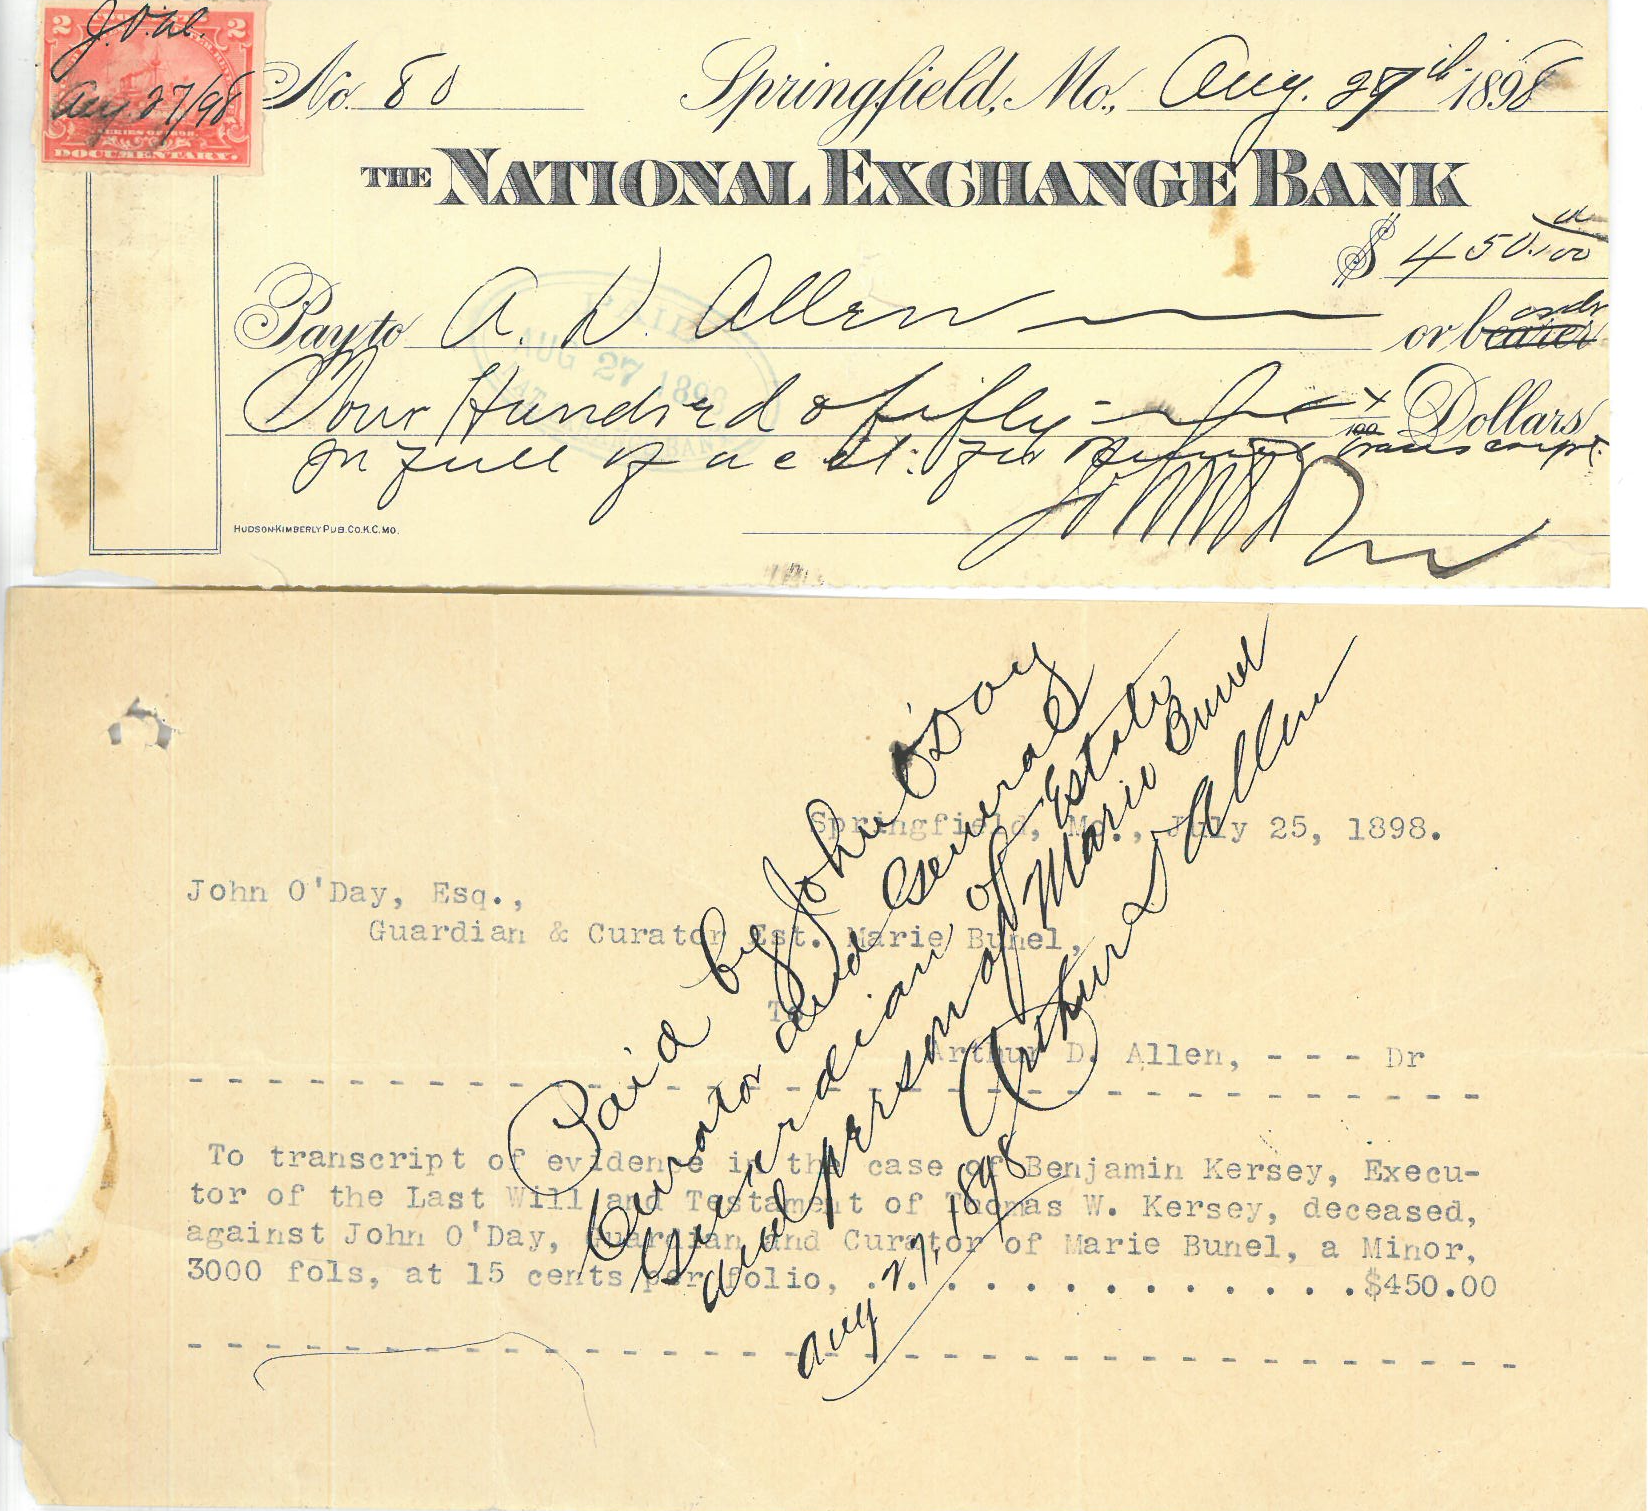 2 2
J.O'D.
Aug. 27/98
SERIES OF 1898
DOCUMENTARY.
No. 80 Springfield, Mo., Aug. 27th 1898
THE NATIONAL EXCHANGE BANK
$ 450.00/100
Pay to A. D. Allen or bearer order
PAID
AUG 27 1898
Four Hundred & fifty x/100 Dollars
In full of acct: for transcript.
HUDSON-KIMBERLY PUB. CO. K.C. MO.
Paid by John O'Day
Curator and General
Guardian of Estate
and person of Marie Bunel
Arthur D Allen
Aug 27, 1898
Springfield, Mo., July 25, 1898.
John O'Day, Esq.,
Guardian & Curator Est. Marie Bunel,
To
Arthur D. Allen, - - - Dr
To transcript of evidence in the case of Benjamin Kersey, Execu-
tor of the Last Will and Testament of Thomas W. Kersey, deceased,
against John O'Day, Guardian and Curator of Marie Bunel, a Minor,
3000 fols, at 15 cents per folio, . . . . . . . . . . . . . $450.00